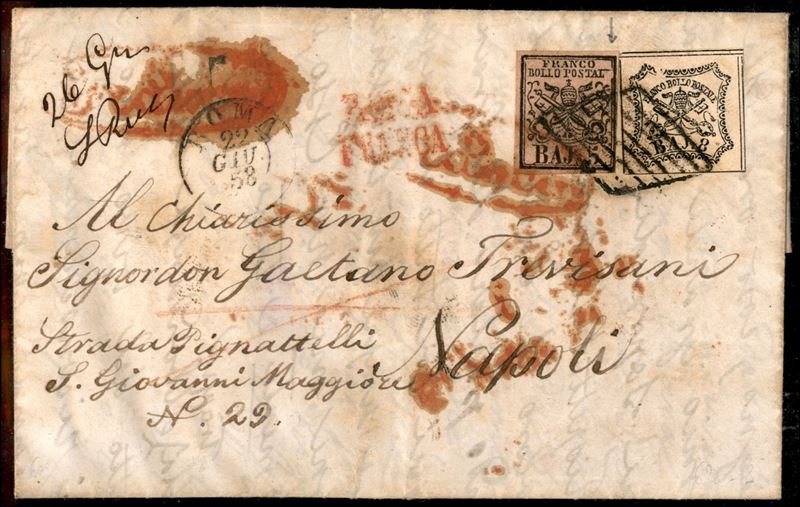 26 Giu
ROMA
22
GIU
58
FRANCA
FRANCO
BOLLO POSTALE
BAJ. 5
FRANCO BOLLO POSTALE
BAJ. 8
Al Chiarissimo
Signordon Gaetano Trevisani
Strada Pignattelli
S. Giovanni Maggiore
N. 29.
Napoli